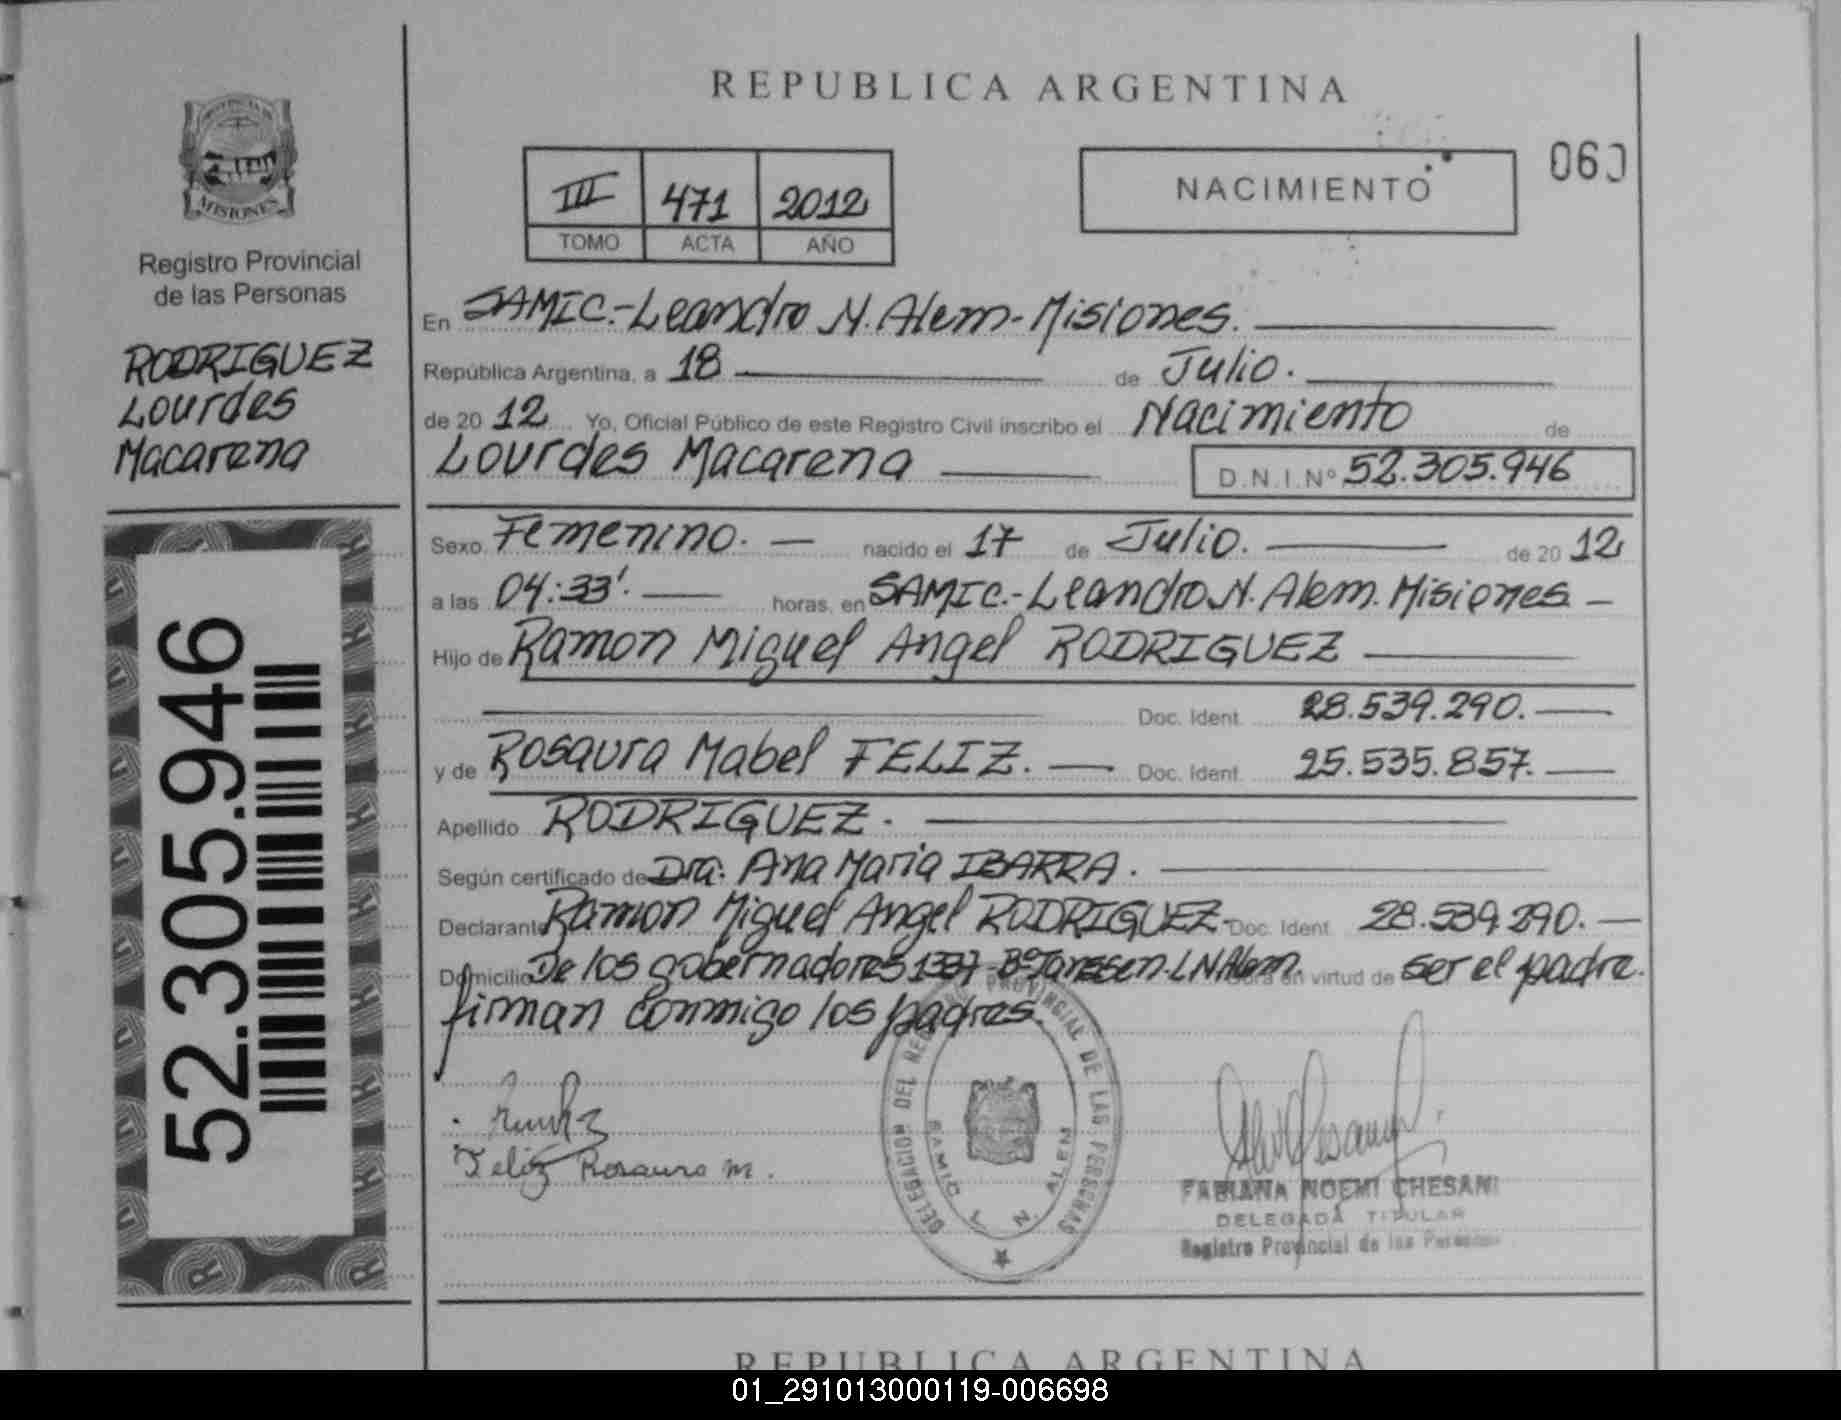 REPUBLICA ARGENTINA
MISIONES
Registro Provincial
de las Personas
RODRIGUEZ
Lourdes
Macarena
52.305.946
III 471 2012
TOMO ACTA AÑO
NACIMIENTO
060
En SAMIC.-Leandro N. Alem-Misiones.
República Argentina, a 18 de Julio.
de 2012 Yo, Oficial Público de este Registro Civil inscribo el Nacimiento de
Lourdes Macarena D.N.I.Nº 52.305.946
Sexo Femenino. nacido el 17 de Julio. de 2012
a las 04:33'. horas, en SAMIC.-Leandro N. Alem. Misiones
Hijo de Ramon Miguel Angel RODRIGUEZ
Doc. Ident. 28.539.290.
y de Rosaura Mabel FELIZ. Doc. Ident. 25.535.857.
Apellido RODRIGUEZ.
Según certificado de Dra. Ana Maria IBARRA.
Declarante Ramon Miguel Angel RODRIGUEZ Doc. Ident. 28.539.290.
Domicilio De los gobernadores 1337 Bº Janssen. L N Alem en virtud de ser el padre.
firman conmigo los padres.
Feliz Rosaura M.
DELEGACION DEL REGISTRO PROVINCIAL DE LAS PERSONAS
SAMIC L. N. ALEM
FABIANA NOEMI CHESANI
DELEGADA TITULAR
Registro Provincial de las Personas
REPUBLICA ARGENTINA
01_291013000119-006698